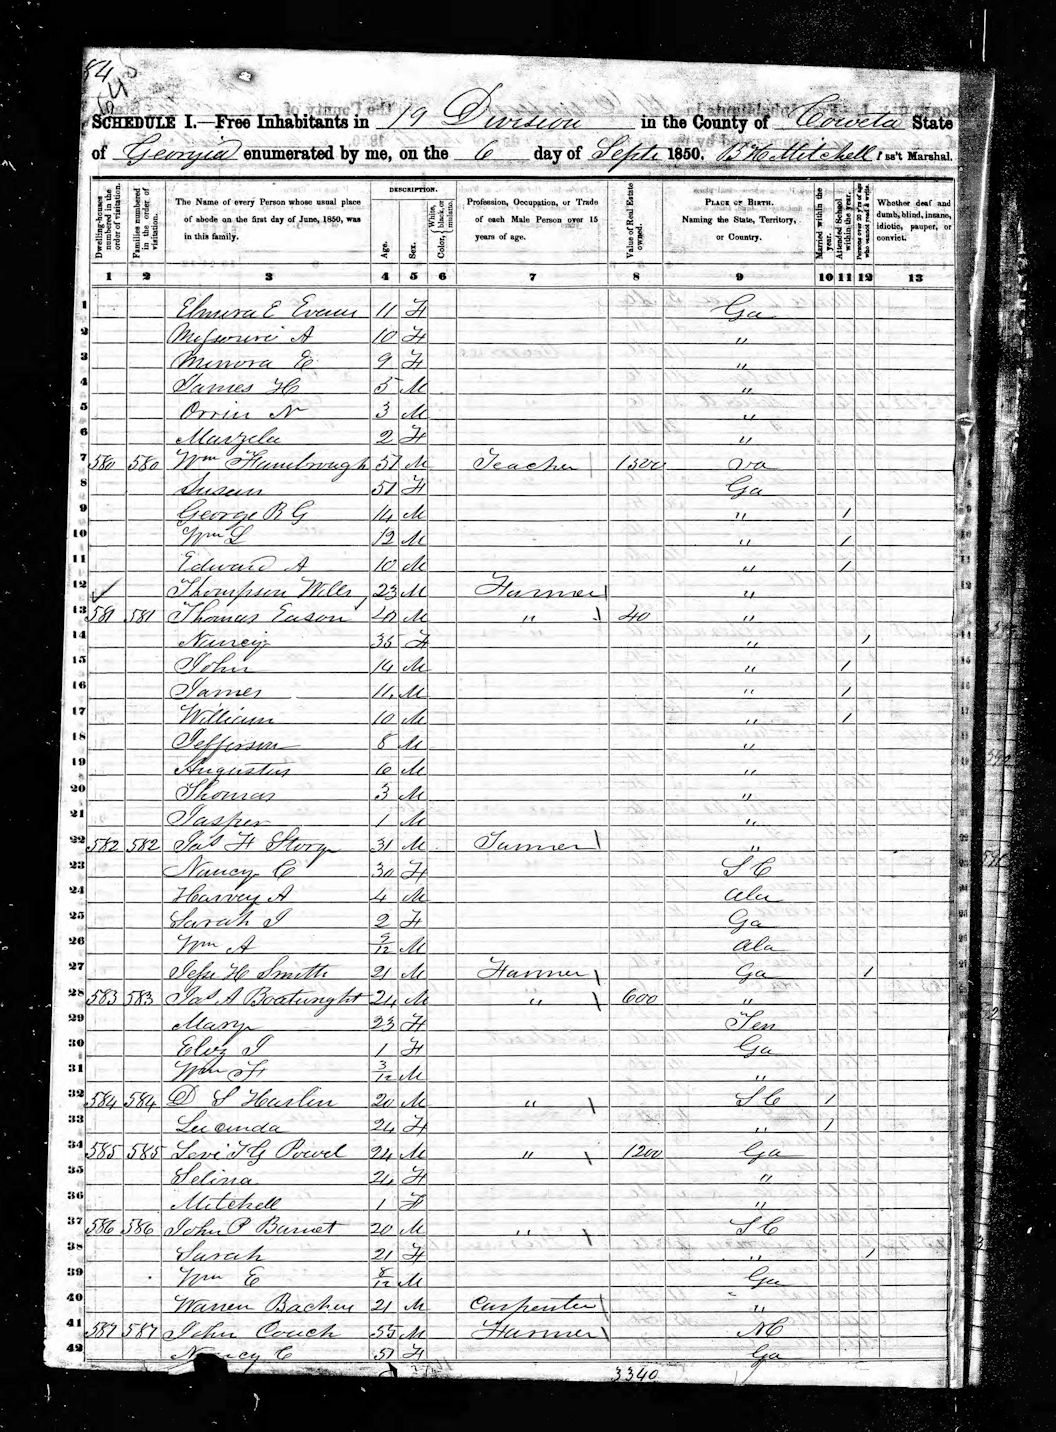 84
SCHEDULE I.—Free Inhabitants in 19 Division in the County of Coweta State
of Georgia enumerated by me, on the 6 day of Septr 1850. B H Mitchell Ass't Marshal.
Dwelling-houses numbered in the order of visitation.
Families numbered in the order of visitation.
The Name of every Person whose usual place of abode on the first day of June, 1850, was in this family.
DESCRIPTION.
Age.
Sex.
Color, { White, black, or mulatto.
Profession, Occupation, or Trade of each Male Person over 15 years of age.
Value of Real Estate owned.
PLACE OF BIRTH. Naming the State, Territory, or Country.
Married within the year.
Attended School within the year.
Persons over 20 y'rs of age who cannot read & write.
Whether deaf and dumb, blind, insane, idiotic, pauper, or convict.
1 2 3 4 5 6 7 8 9 10 11 12 13
1 Elmira E Evans 11 F Ga
2 A 10 F "
3 Minora E 9 F "
4 James H 5 M "
5 Orrin N 3 M "
6 2 F "
7 580 580 Wm Hambrough 51 M Teacher 1300 Va
8 Susan 51 F Ga
9 George R G 14 M " 1
10 Wm L 12 M " 1
11 Edward A 10 M " 1
12 Thompson Wills 23 M Farmer "
13 581 581 Thomas Eason 40 M " 40 "
14 Nancy 35 F " 1
15 John 14 M " 1
16 James 11 M " 1
17 William 10 M " 1
18 Jefferson 8 M "
19 Augustus 6 M "
20 Thomas 3 M "
21 Jasper 1 M "
22 582 582 Jas H Story 31 M Tanner "
23 Nancy C 30 F S C
24 Harvey A 4 M Ala
25 Sarah J 2 F Ga
26 Wm A 9/12 M Ala
27 Jesse H Smith 21 M Farmer Ga 1
28 583 583 Jas A Boatwright 24 M " 600 "
29 Mary 23 F Ten
30 Eliz J 1 F Ga
31 Wm F 3/12 M "
32 584 584 D S Harlin 20 M " S C 1
33 Lucinda 24 F " 1
34 585 585 Levi T G Powel 24 M " 1200 Ga
35 Selina 24 F "
36 Mitchell 1 F "
37 586 586 John P Barnet 20 M " S C
38 Sarah 21 F " 1
39 Wm E 8/12 M Ga
40 Warren Backus 21 M Carpenter "
41 587 587 John Couch 55 M Farmer N C
42 Nancy C 51 F Ga
3340